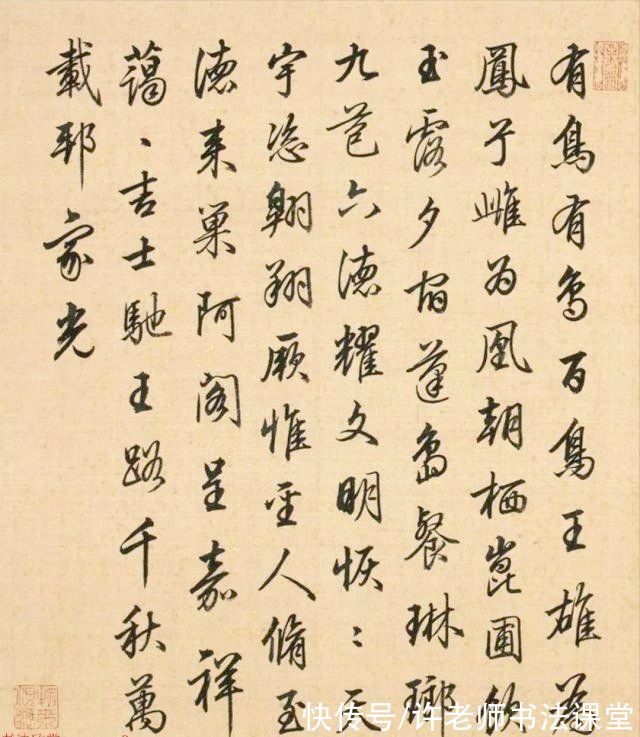 有鳥有鳥百鳥王雄為
鳳兮雌為凰朝栖崑圃飲
玉露夕宿蓬島餐琳瑯
九苞六德耀文明恢〻天
宇恣翱翔厥惟聖人脩至
德来巢阿閣呈嘉祥
藹〻吉士馳王路千秋萬
載邦家光
快传号/许老师书法课堂